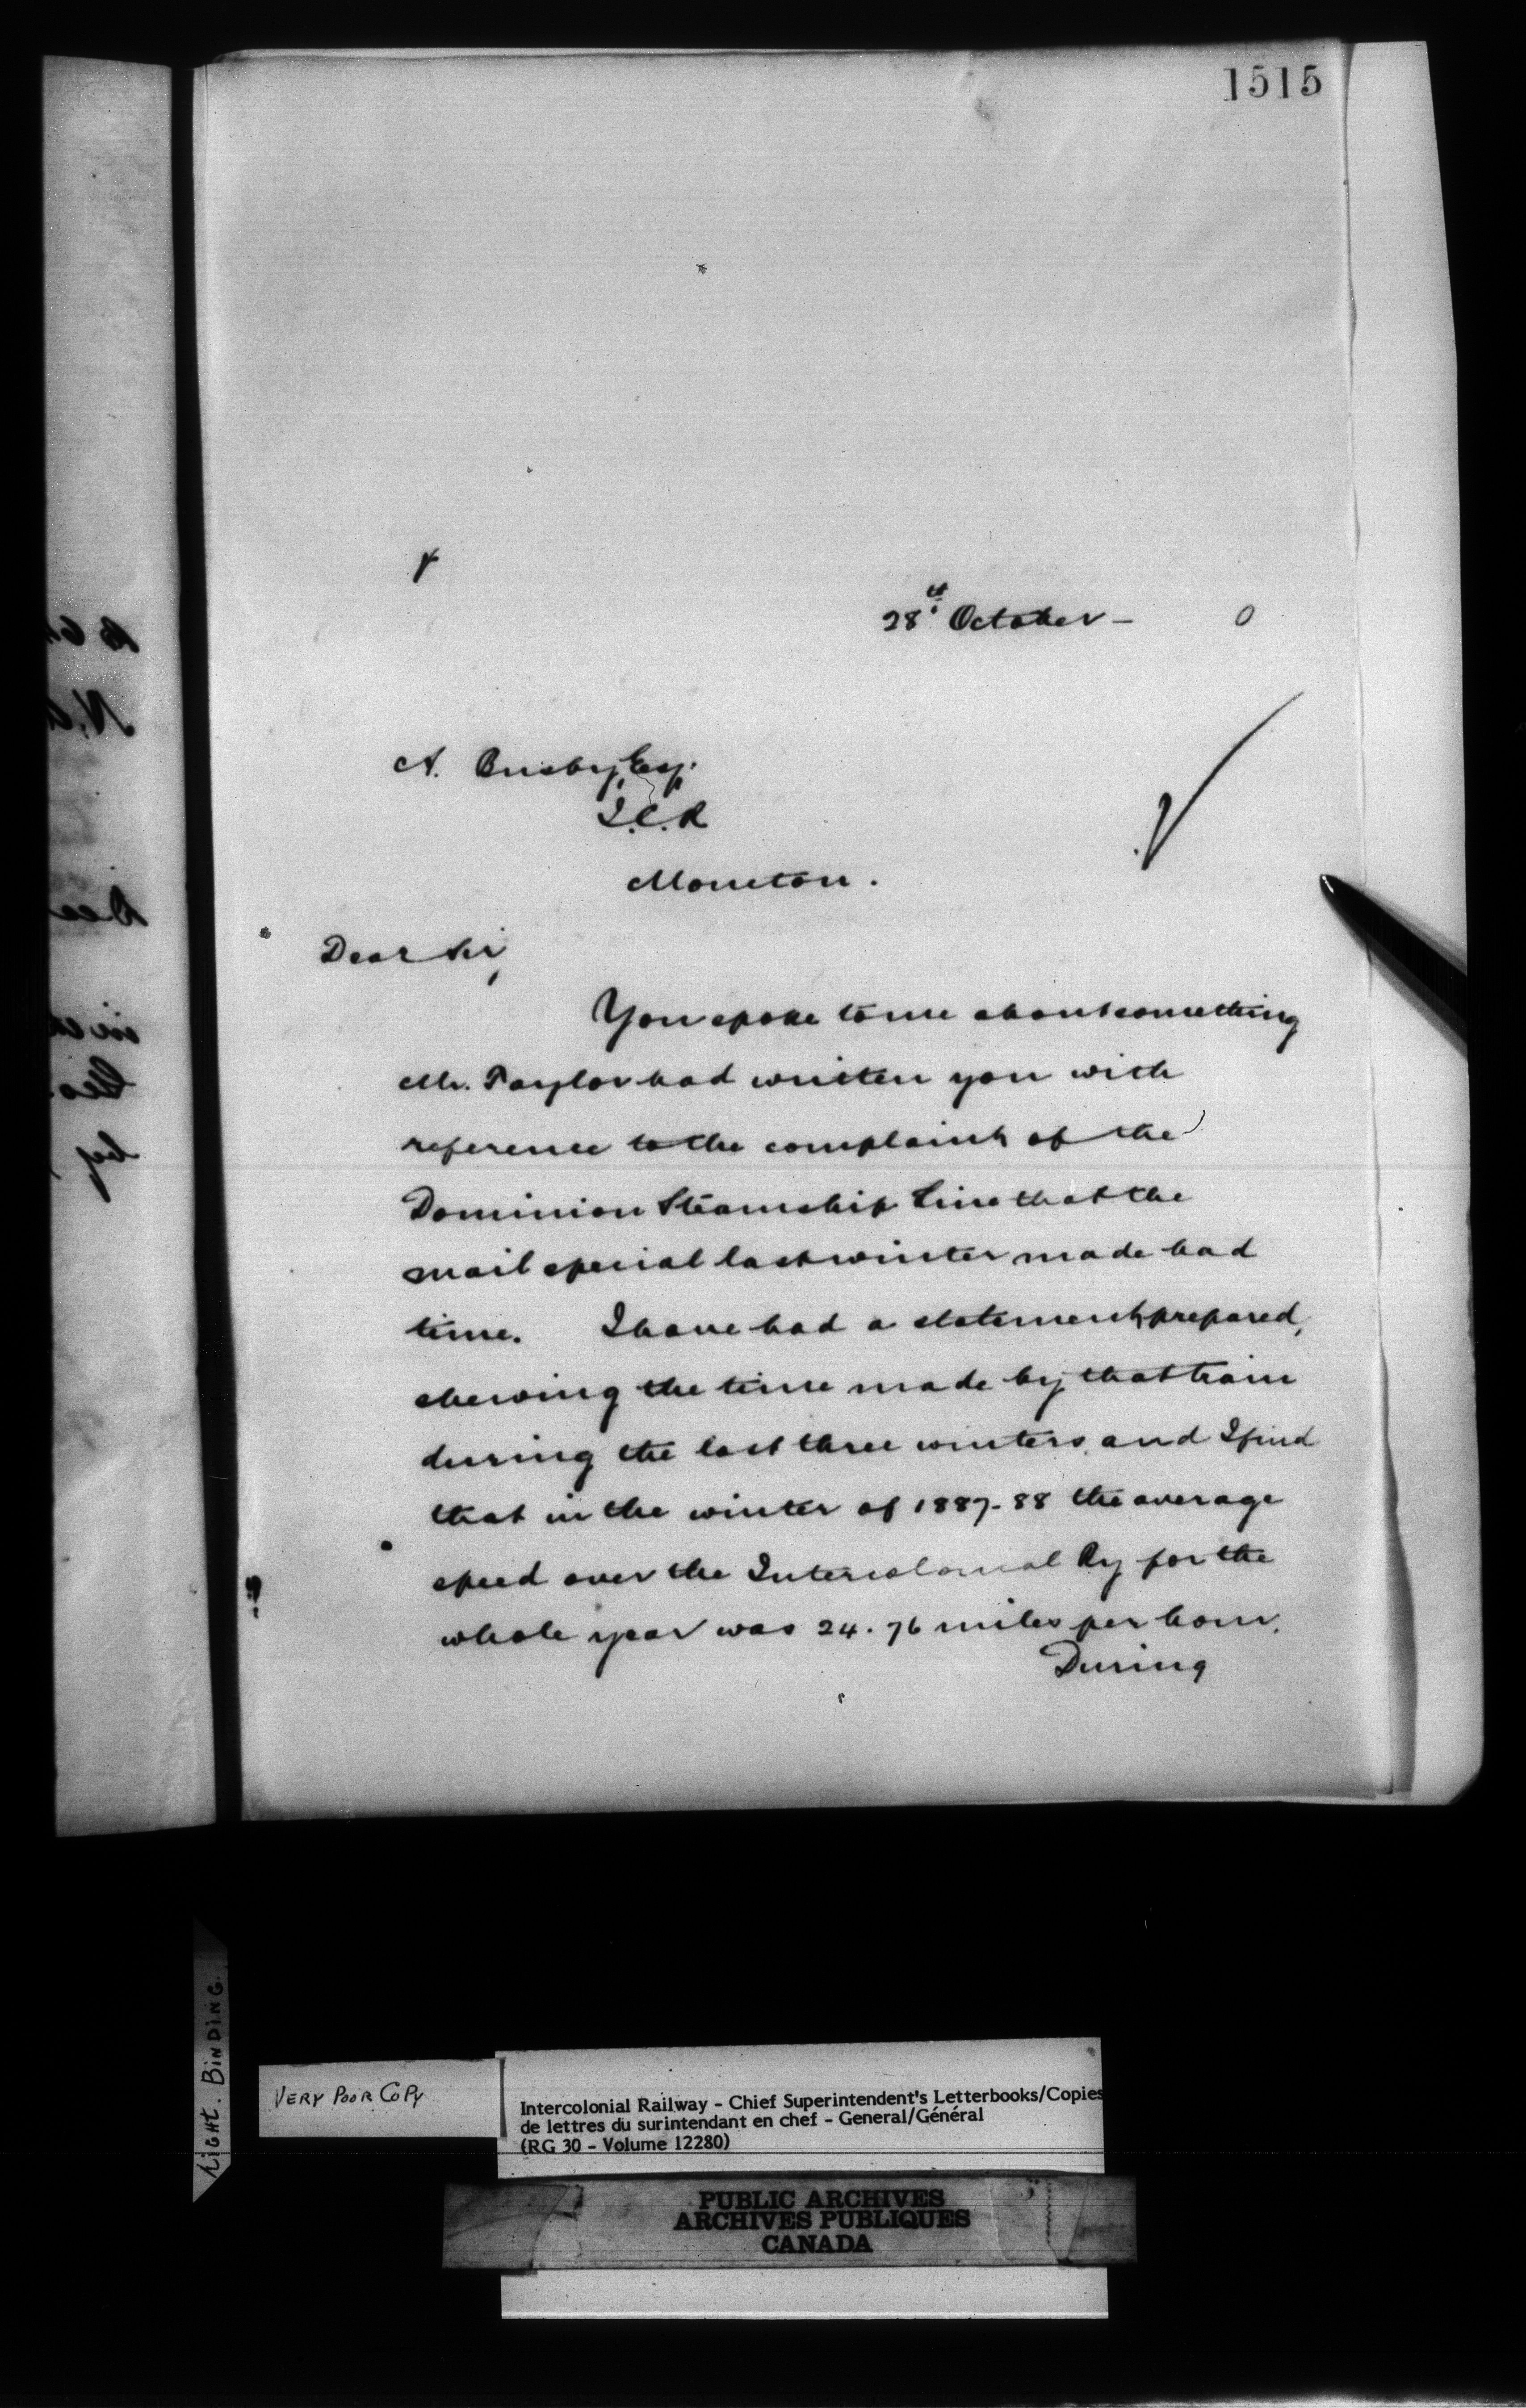 1515
28th October – 0
A. Busby, Esq.
I.C.R
Moncton.
Dear Sir,
You spoke to me about something
Mr. Taylor had written you with
reference to the complaint of the
Dominion Steamship Line that the
mail special last winter made bad
time. I have had a statement prepared,
shewing the time made by that train
during the last three winters, and I find
that in the winter of 1887-88 the average
speed over the Intercolonial Ry for the
whole year was 24.76 miles per hour.
During
TIGHT. BINDING.
VERY POOR COPY
Intercolonial Railway - Chief Superintendent's Letterbooks/Copies
de lettres du surintendant en chef - General/Général
(RG 30 - Volume 12280)
PUBLIC ARCHIVES
ARCHIVES PUBLIQUES
CANADA